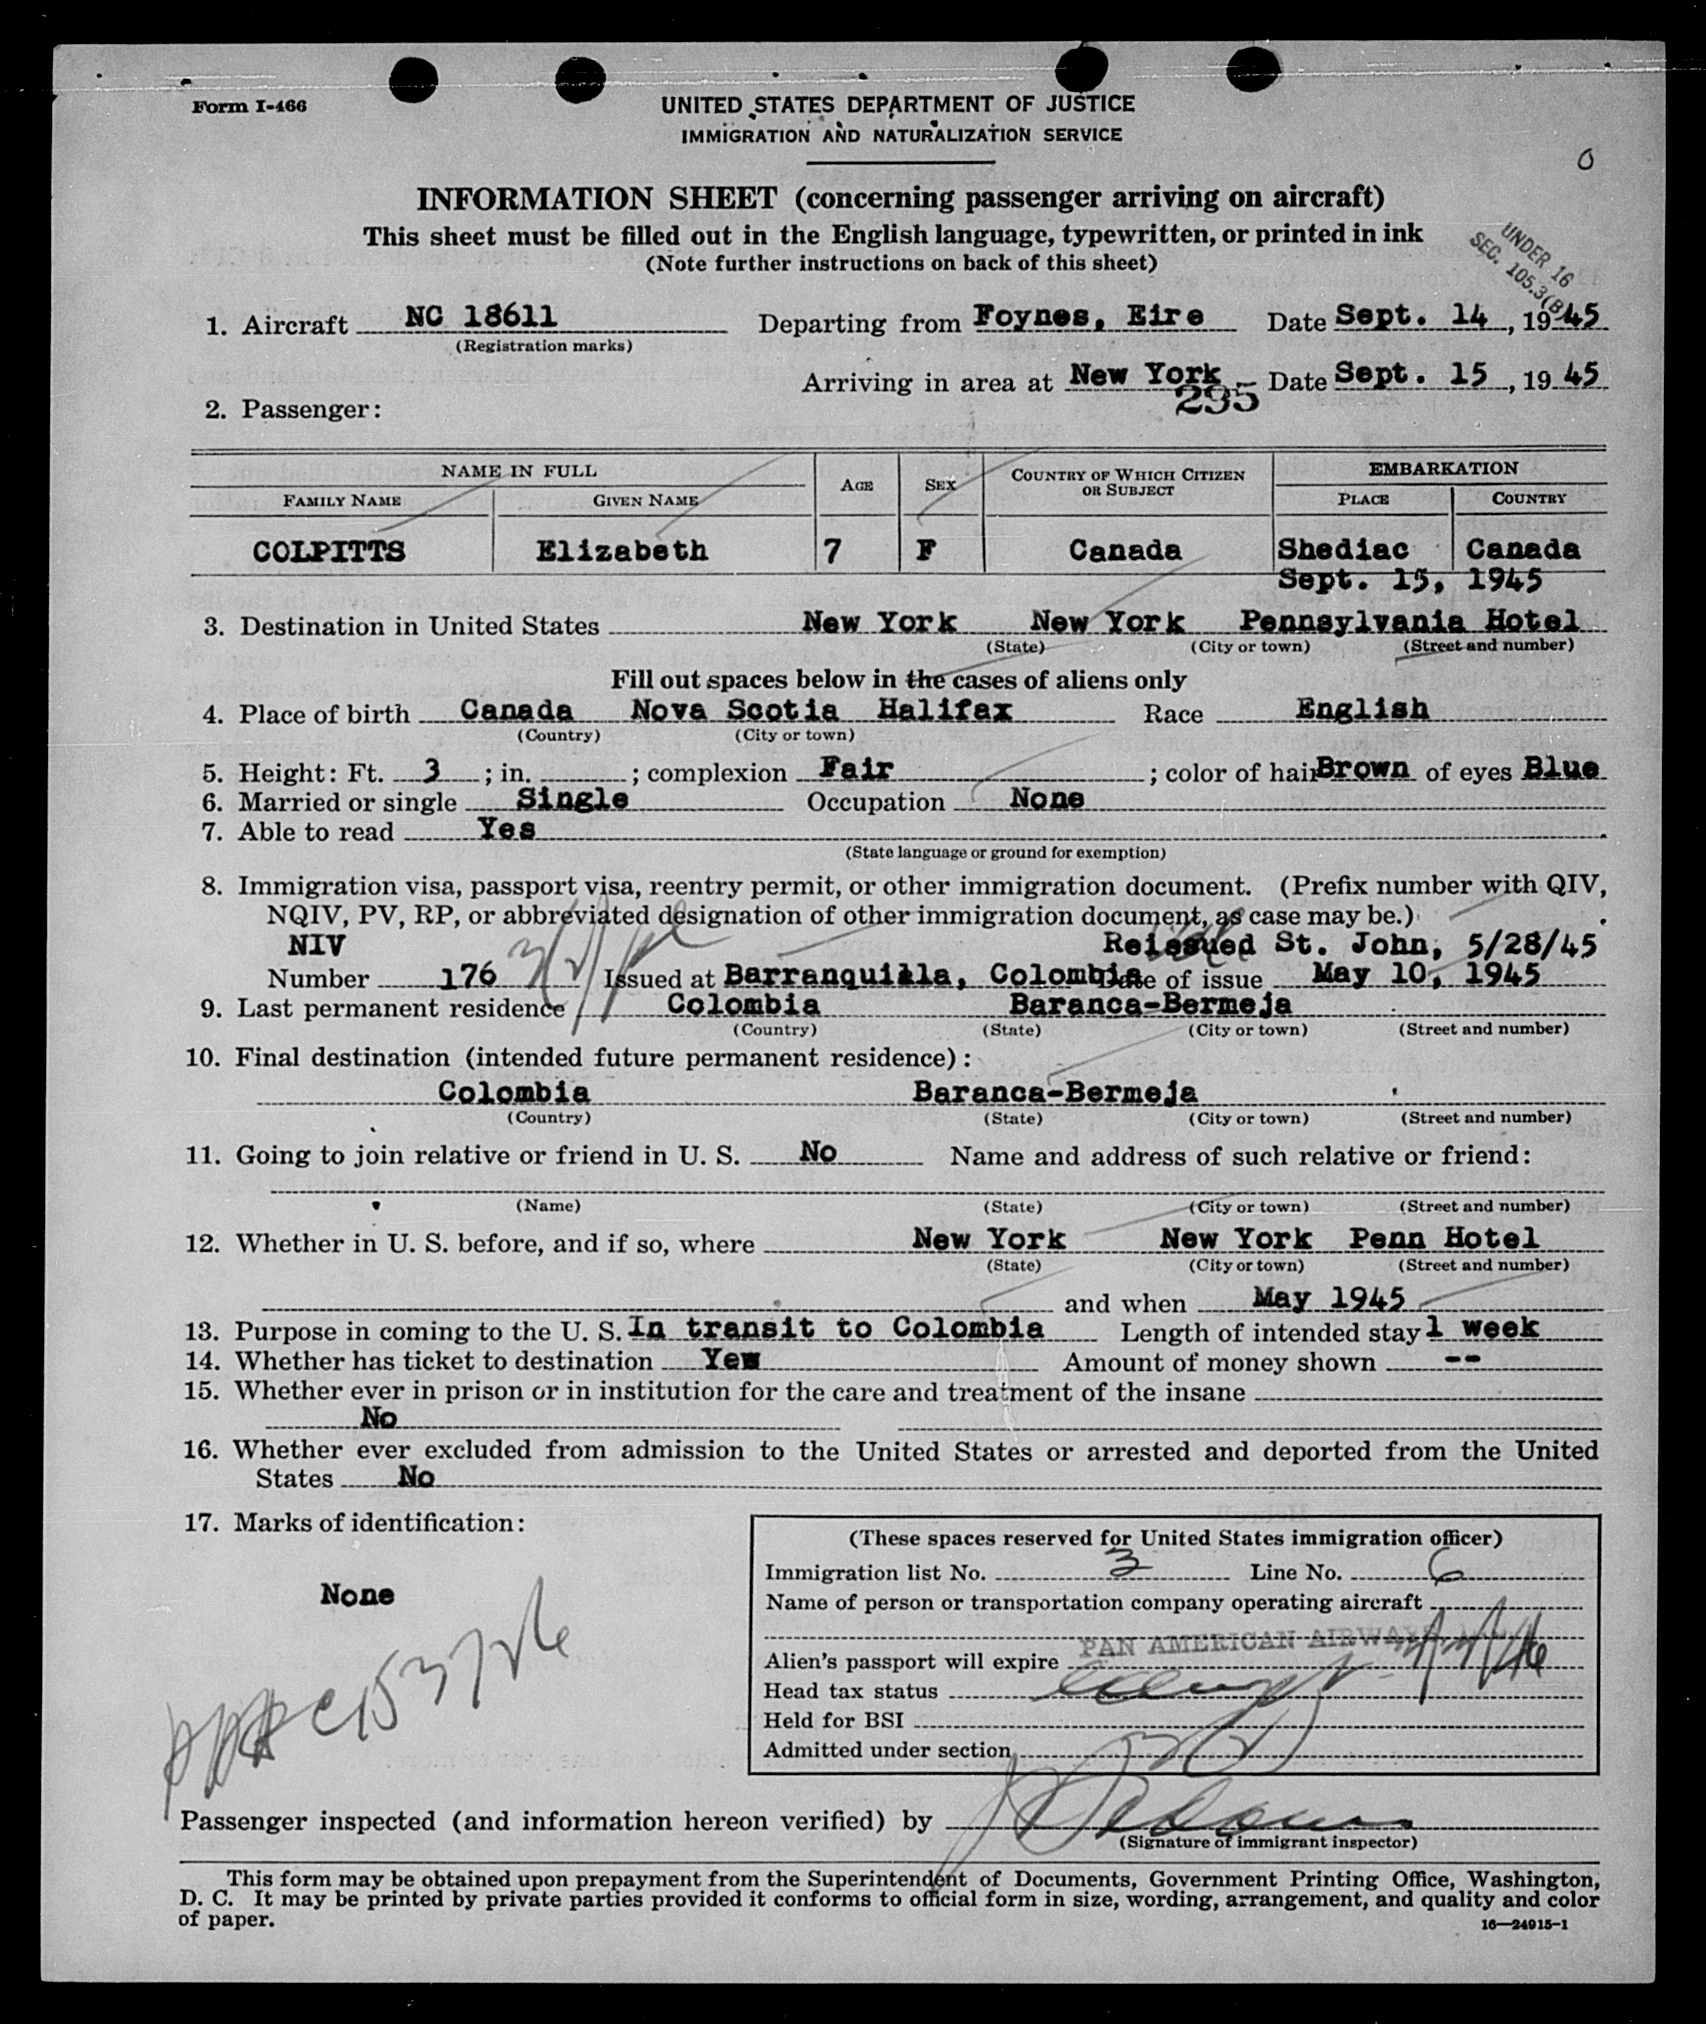 Form I-466
UNITED STATES DEPARTMENT OF JUSTICE
IMMIGRATION AND NATURALIZATION SERVICE
0
INFORMATION SHEET (concerning passenger arriving on aircraft)
This sheet must be filled out in the English language, typewritten, or printed in ink
(Note further instructions on back of this sheet)
UNDER 16
SEC. 105.3(B)
1. Aircraft NC 18611 Departing from Foynes, Eire Date Sept. 14, 1945
(Registration marks)
Arriving in area at New York Date Sept. 15, 1945
295
2. Passenger:
NAME IN FULL AGE SEX COUNTRY OF WHICH CITIZEN OR SUBJECT EMBARKATION
FAMILY NAME GIVEN NAME PLACE COUNTRY
COLPITTS Elizabeth 7 F Canada Shediac Canada
Sept. 15, 1945
3. Destination in United States New York New York Pennsylvania Hotel
(State) (City or town) (Street and number)
Fill out spaces below in the cases of aliens only
4. Place of birth Canada Nova Scotia Halifax Race English
(Country) (City or town)
5. Height: Ft. 3 ; in. ; complexion Fair ; color of hair Brown of eyes Blue
6. Married or single Single Occupation None
7. Able to read Yes
(State language or ground for exemption)
8. Immigration visa, passport visa, reentry permit, or other immigration document. (Prefix number with QIV,
NQIV, PV, RP, or abbreviated designation of other immigration document, as case may be.)
NIV Reissued St. John, 5/28/45
Number 176 Issued at Barranquilla, Colombia Date of issue May 10, 1945
9. Last permanent residence Colombia Baranca-Bermeja
(Country) (State) (City or town) (Street and number)
10. Final destination (intended future permanent residence):
Colombia Baranca-Bermeja
(Country) (State) (City or town) (Street and number)
11. Going to join relative or friend in U. S. No Name and address of such relative or friend:
(Name) (State) (City or town) (Street and number)
12. Whether in U. S. before, and if so, where New York New York Penn Hotel
(State) (City or town) (Street and number)
and when May 1945
13. Purpose in coming to the U. S. In transit to Colombia Length of intended stay 1 week
14. Whether has ticket to destination Yes Amount of money shown --
15. Whether ever in prison or in institution for the care and treatment of the insane
No
16. Whether ever excluded from admission to the United States or arrested and deported from the United
States No
17. Marks of identification:
None
(These spaces reserved for United States immigration officer)
Immigration list No. 3 Line No. 6
Name of person or transportation company operating aircraft
PAN AMERICAN AIRWAYS,
Alien's passport will expire
Head tax status
Held for BSI
Admitted under section
Passenger inspected (and information hereon verified) by
(Signature of immigrant inspector)
This form may be obtained upon prepayment from the Superintendent of Documents, Government Printing Office, Washington,
D. C. It may be printed by private parties provided it conforms to official form in size, wording, arrangement, and quality and color
of paper.
16—24915-1